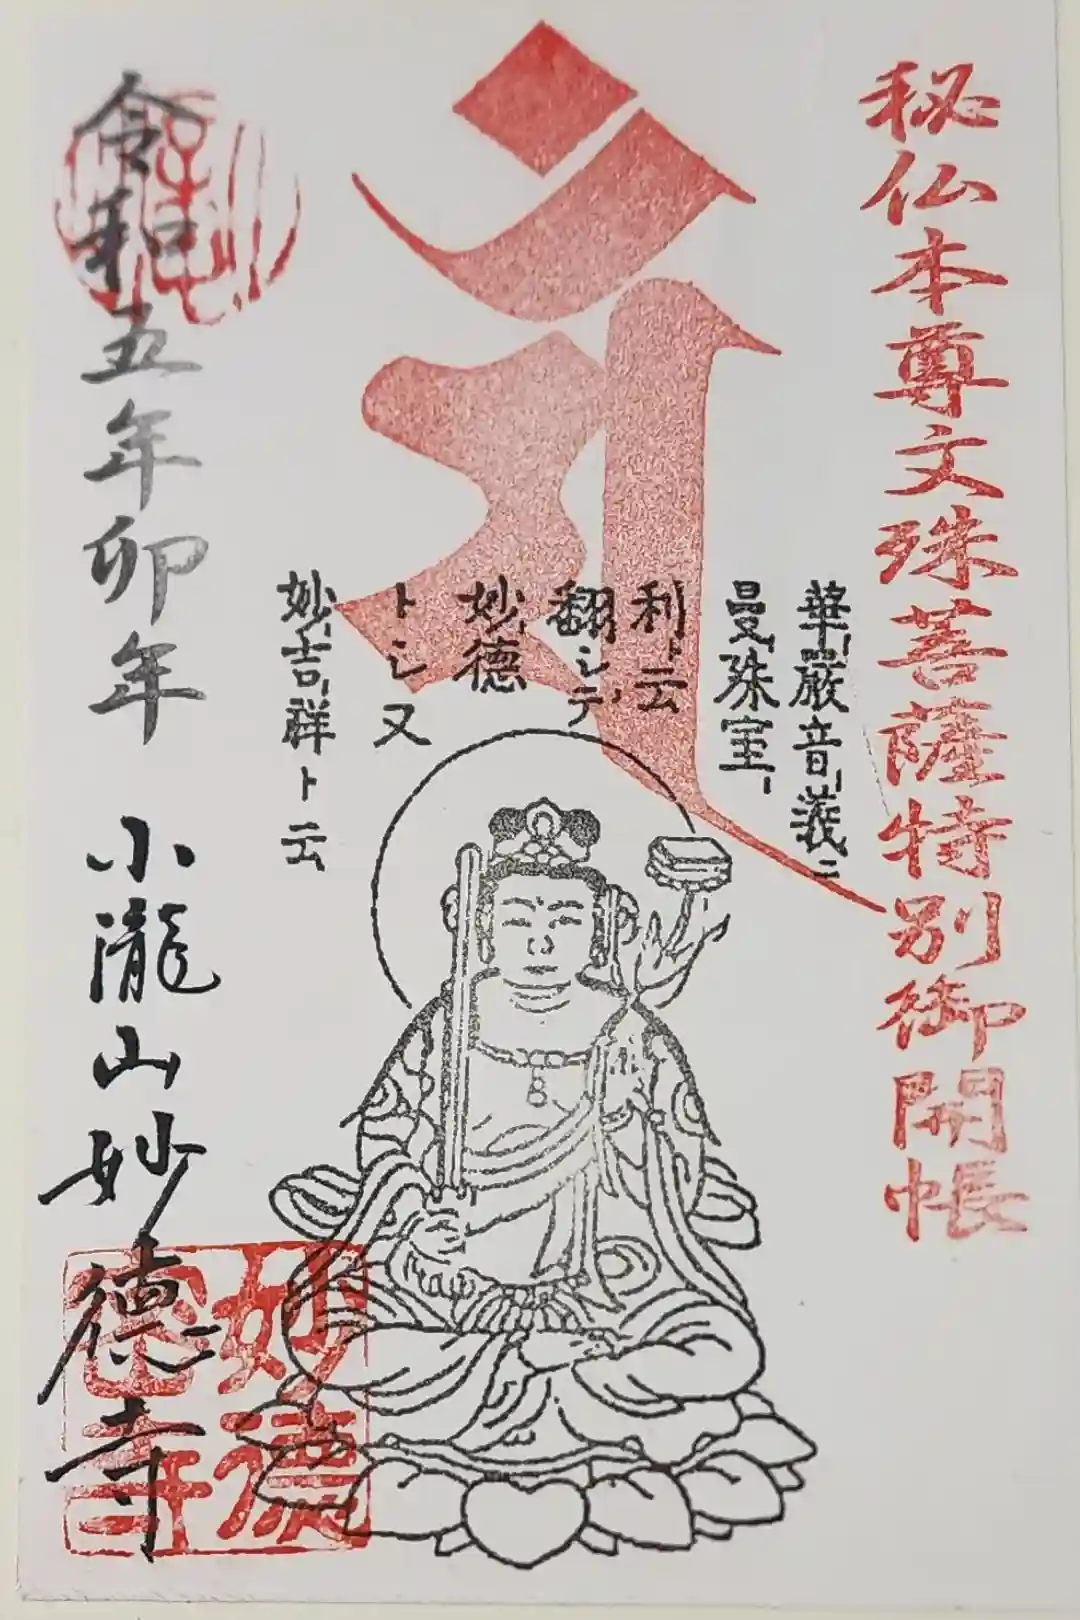 秘仏本尊文殊菩薩特別御開帳
華厳音義ニ
曼殊室
利ト云
翻シテ
妙徳
トシ又
妙吉祥ト云
令和五年卯年 小瀧山妙徳寺
妙徳
寺